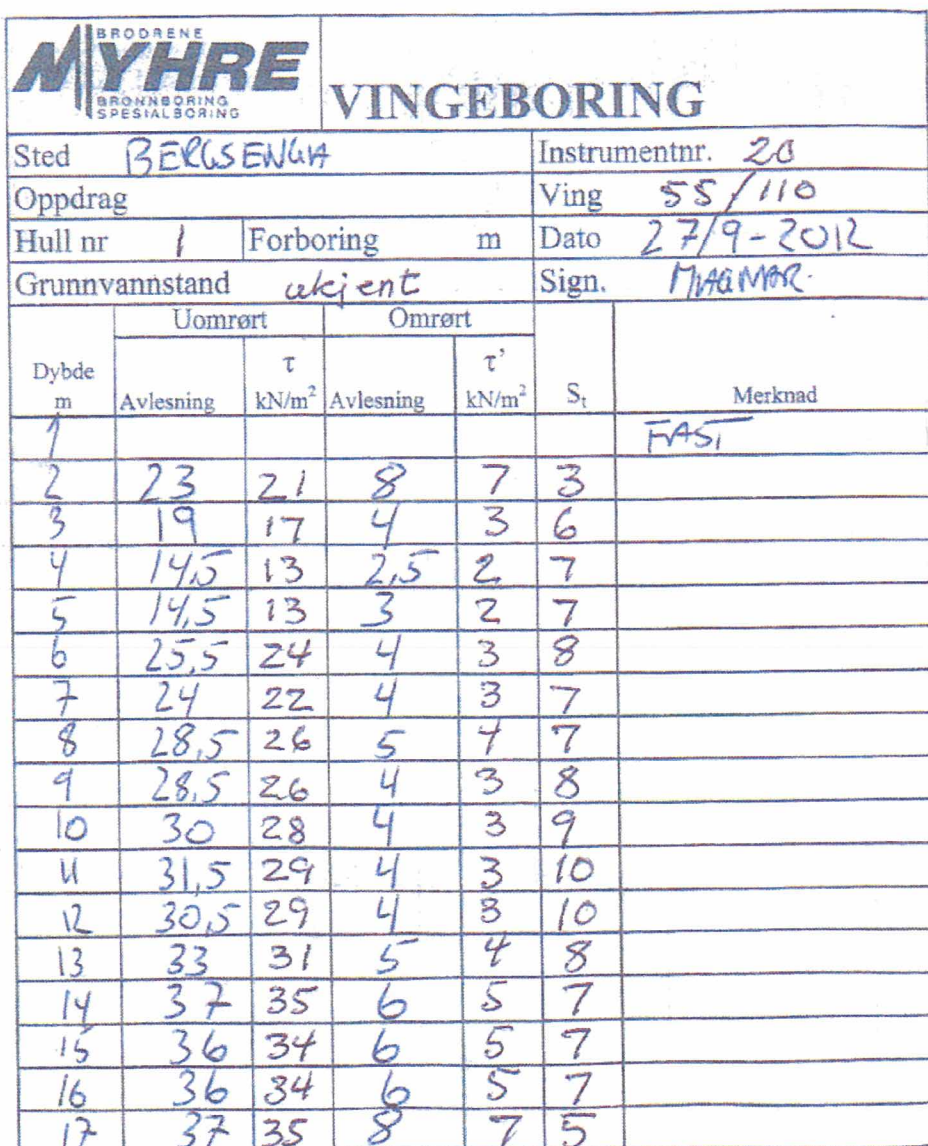 BRØDRENE
MYHRE
BRØNNBORING
SPESIALBORING
VINGEBORING
Sted BERGSENGA Instrumentnr. 20
Oppdrag Ving 55/110
Hull nr 1 Forboring m Dato 27/9-2012
Grunnvannstand ukjent Sign.
Uomrørt Omrørt
Dybde m Avlesning τ kN/m² Avlesning τ' kN/m² St Merknad
1 FAST
2 23 21 8 7 3
3 19 17 4 3 6
4 14,5 13 2,5 2 7
5 14,5 13 3 2 7
6 25,5 24 4 3 8
7 24 22 4 3 7
8 28,5 26 5 4 7
9 28,5 26 4 3 8
10 30 28 4 3 9
11 31,5 29 4 3 10
12 30,5 29 4 3 10
13 33 31 5 4 8
14 37 35 6 5 7
15 36 34 6 5 7
16 36 34 6 5 7
17 37 35 8 7 5